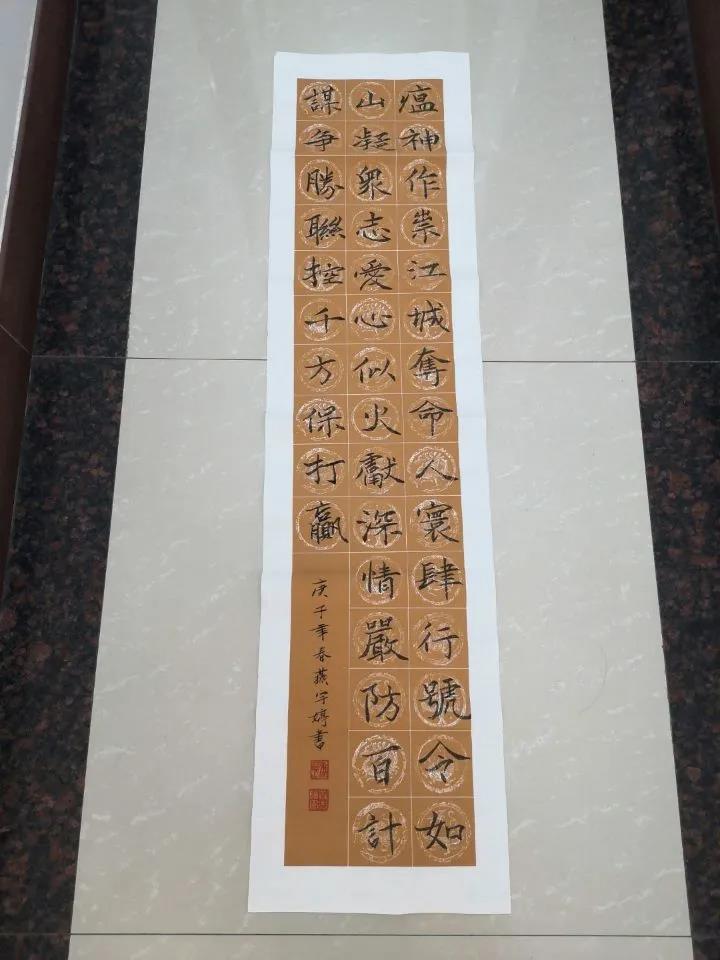 瘟神作祟江城奪命人寰肆行號令如
山凝眾志愛心似火獻深情嚴防百計
謀爭勝聯控千方保打贏
庚子年春燕宇婷書